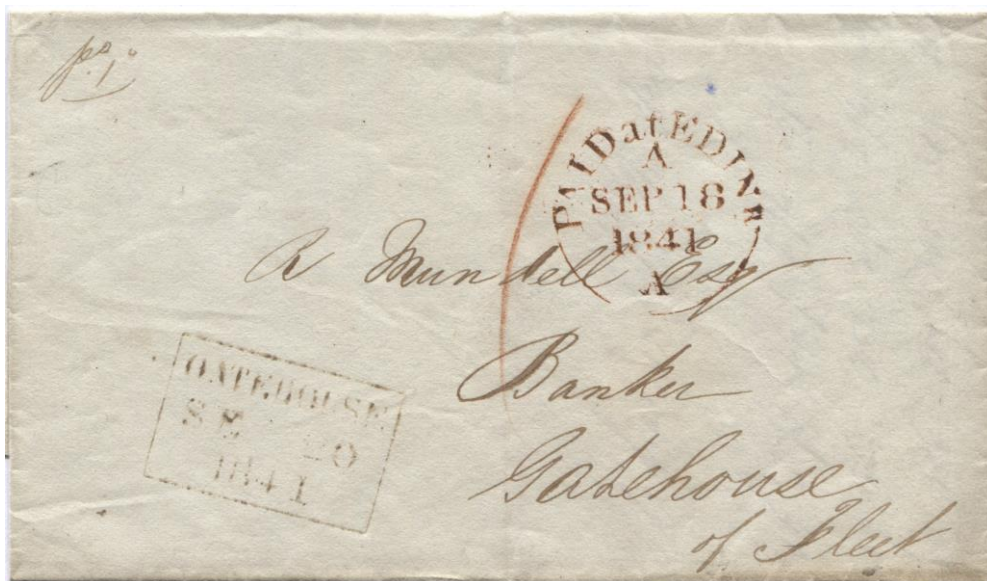 pd 1d
PAID at EDINR
A
SEP 18
1841
A
R Mundell Esq
Banker
Gatehouse
of Fleet
GATEHOUSE
SE 20
1841